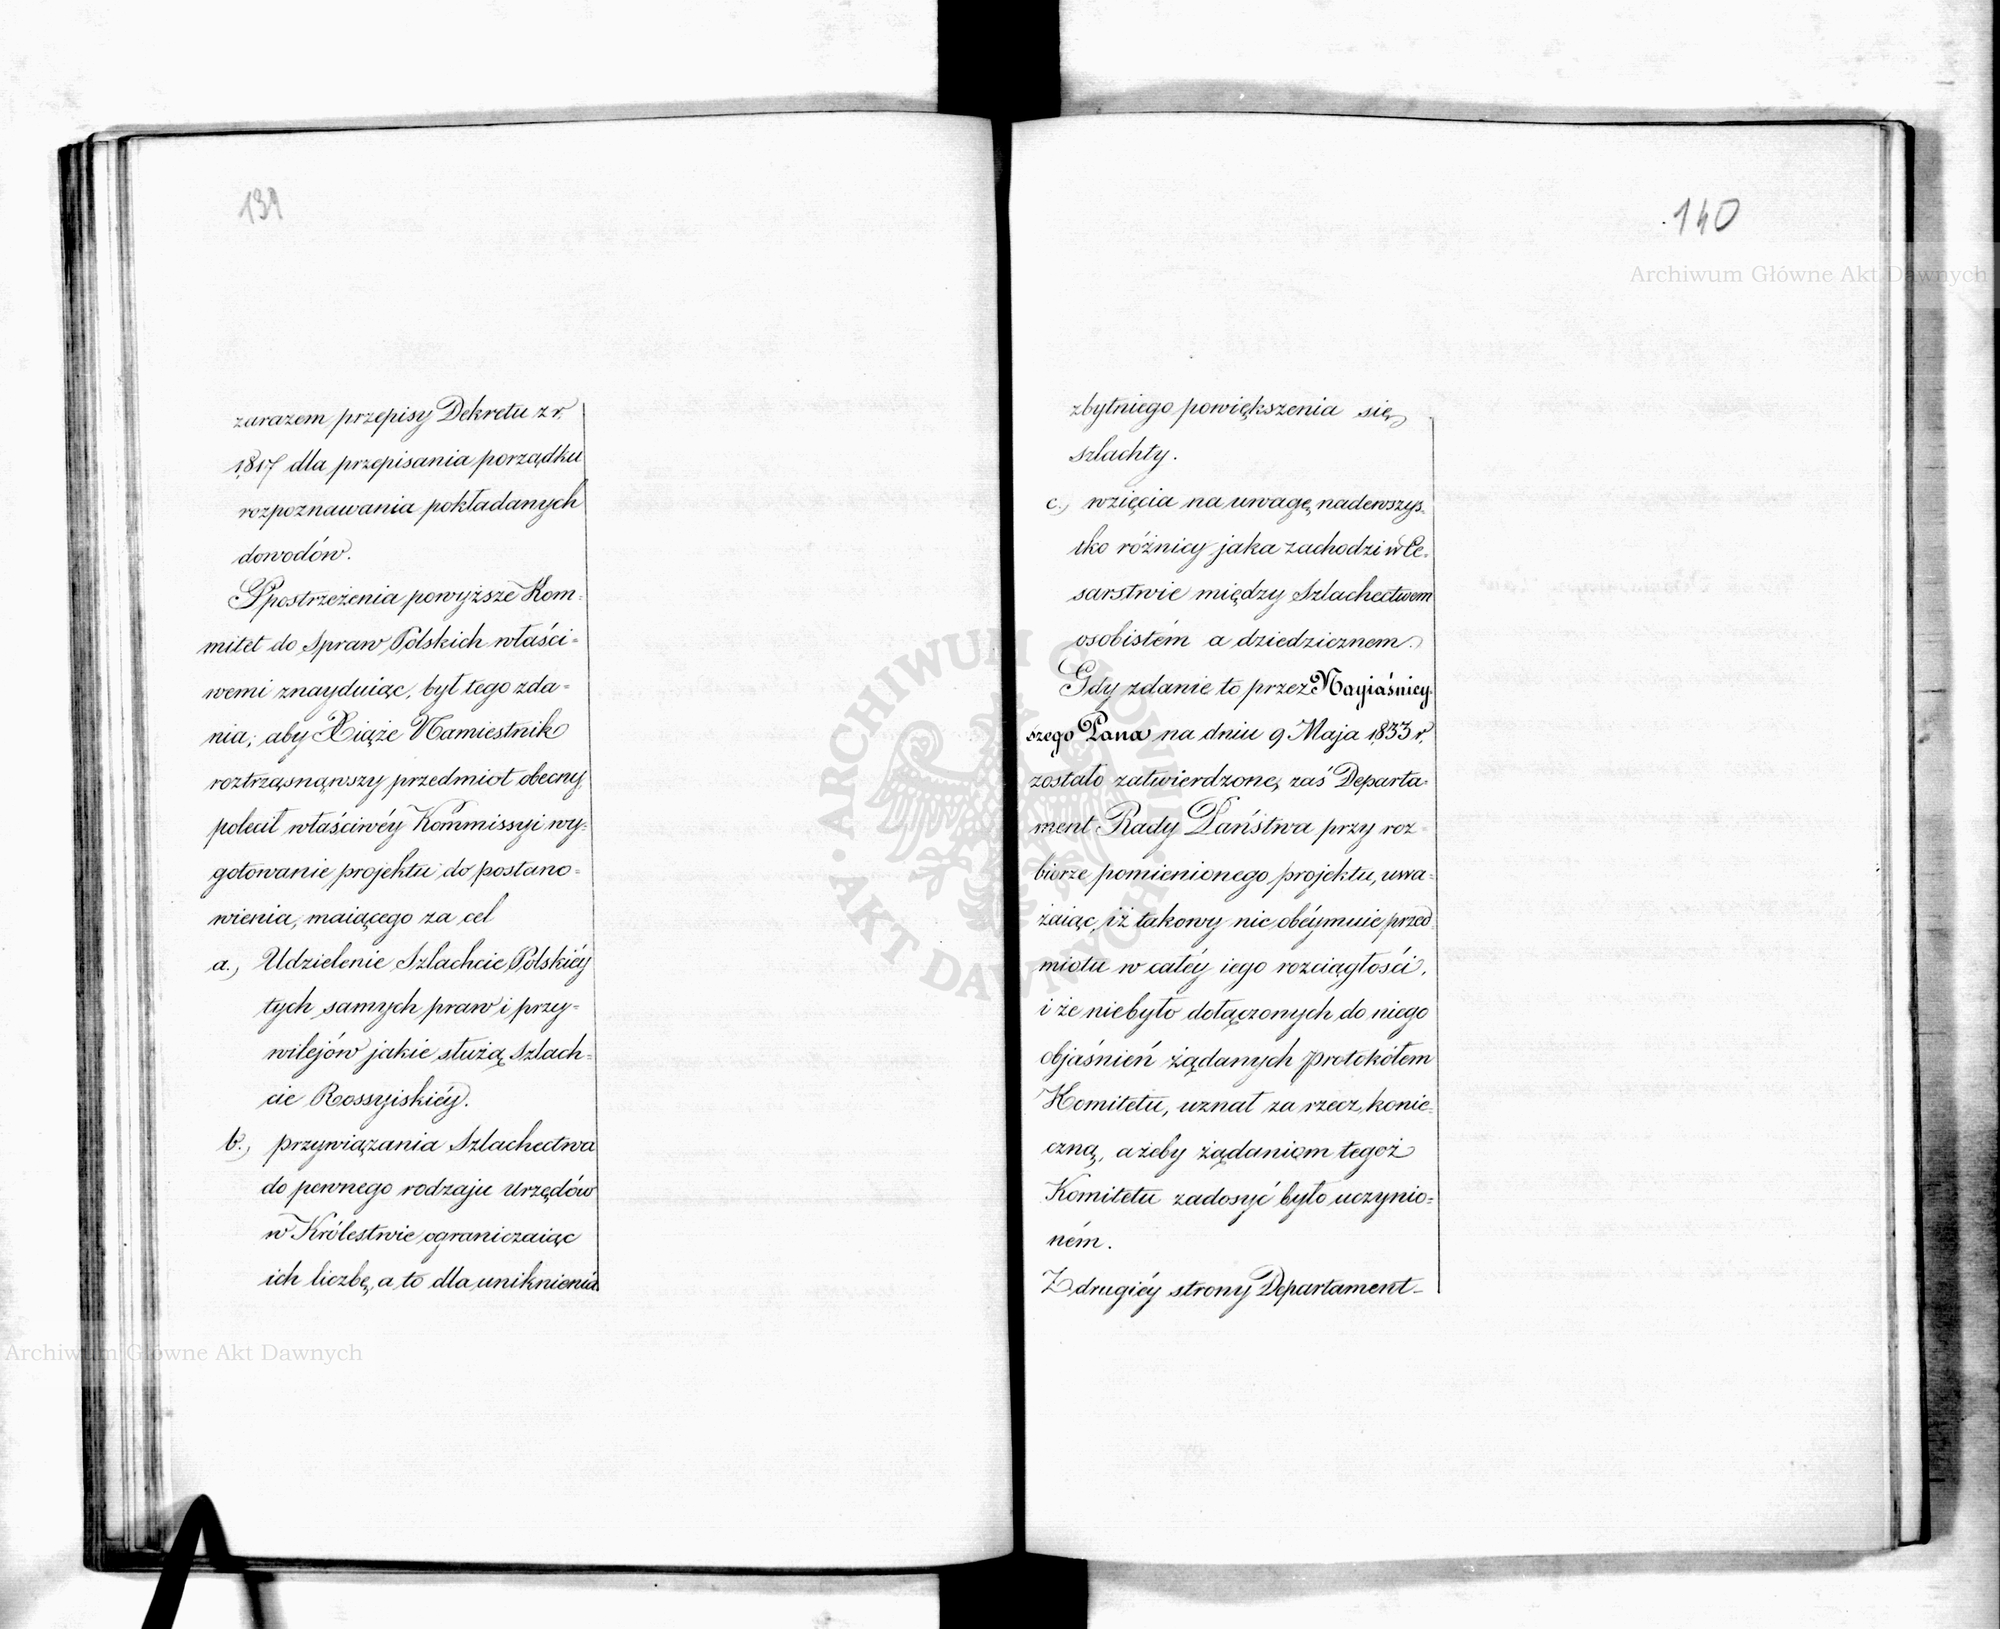 139
zarazem przepisy Dekretu z r.
1817 dla przepisania porządku
rozpoznawania pokładanych
dowodów.
Spostrzeżenia powyższe Kom=
mitet do Spraw Polskich właści=
wemi znayduiąc, był tego zda=
nia; aby Xiąże Namiestnik
roztrząsnąwszy przedmiot obecny,
polecił właściwéy Kommissyi wy=
gotowanie projektu do postano=
wienia, maiącego za cel
a., Udzielenie Szlachcie Polskiéy
tych samych praw i przy=
wilejów jakie służą Szlach=
cie Rossyiskiéy.
b., przywiązania Szlachectwa
do pewnego rodzaju urzędów
w Królestwie ograniczaiąc
ich liczbę, a to dla uniknienia
140
zbytniego powiększenia się
szlachty.
c., wzięcia na uwagę, nadewszys=
tko różnicy jaka zachodzi w Ce=
sarstwie między Szlachectwem
osobistém a dziedzicznem.
Gdy zdanie to przez Nayiaśniey=
szego Pana na dniu 9 Maja 1833 r.
zostało zatwierdzone, zaś Departa=
ment Rady Państwa przy roz=
biorze pomienionego projektu, uwa=
żaiąc, iż takowy nie obéymuie przed=
miotu w całéy iego rozciągłości,
i że niebyło dołączonych do niego
objaśnień żądanych protokółem
Komitetu, uznał za rzecz konie=
czną, ażeby żądaniom tegoż
Komitetu zadosyć było uczynio=
ném.
Z drugiéy strony Departament
Archiwum Główne Akt Dawnych
ARCHIWUM GŁÓWNE · AKT DAWNYCH ·
Archiwum Główne Akt Dawnych